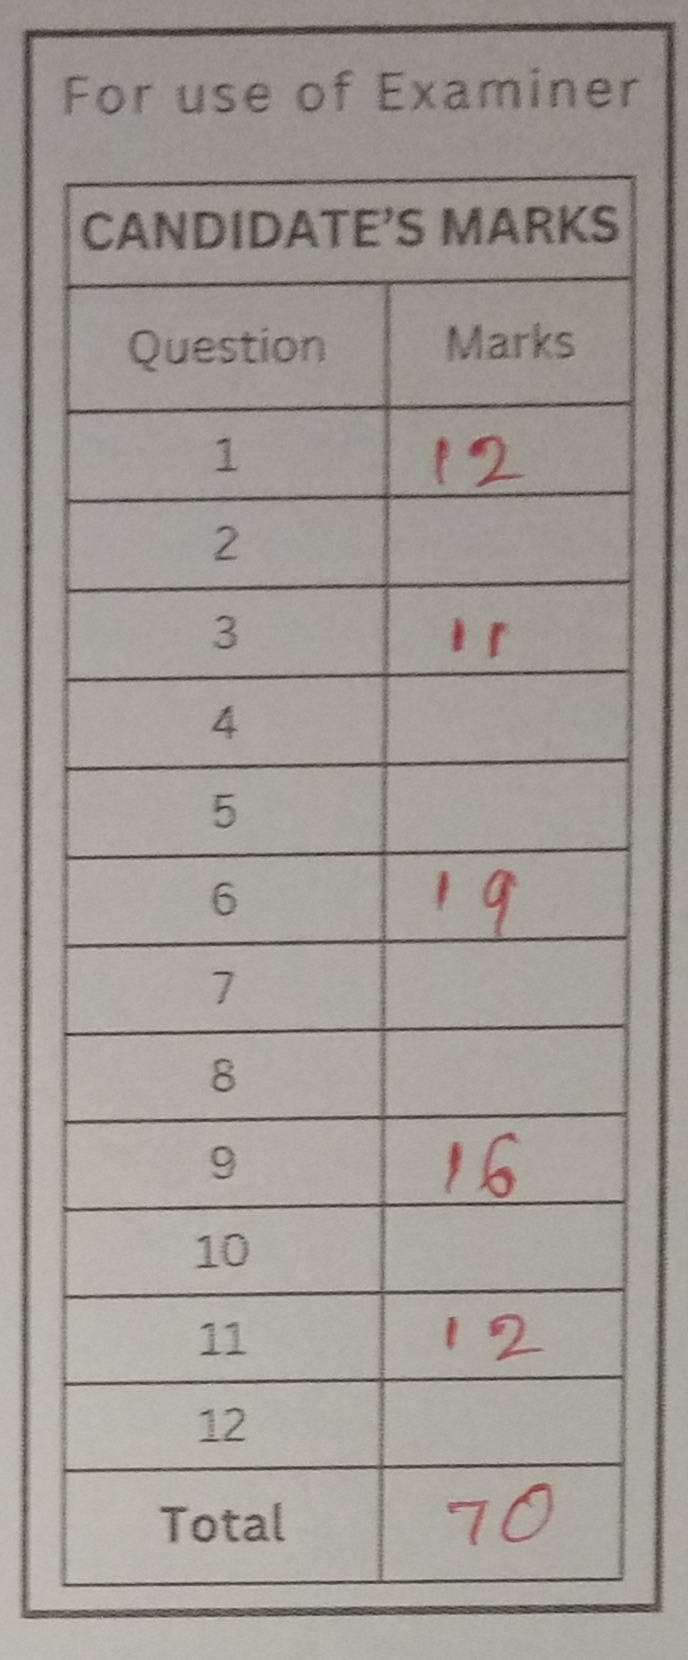 For use of Examiner
CANDIDATE'S MARKS
Question Marks
1 12
2
3 11
4
5
6 19
7
8
9 16
10
11 12
12
Total 70